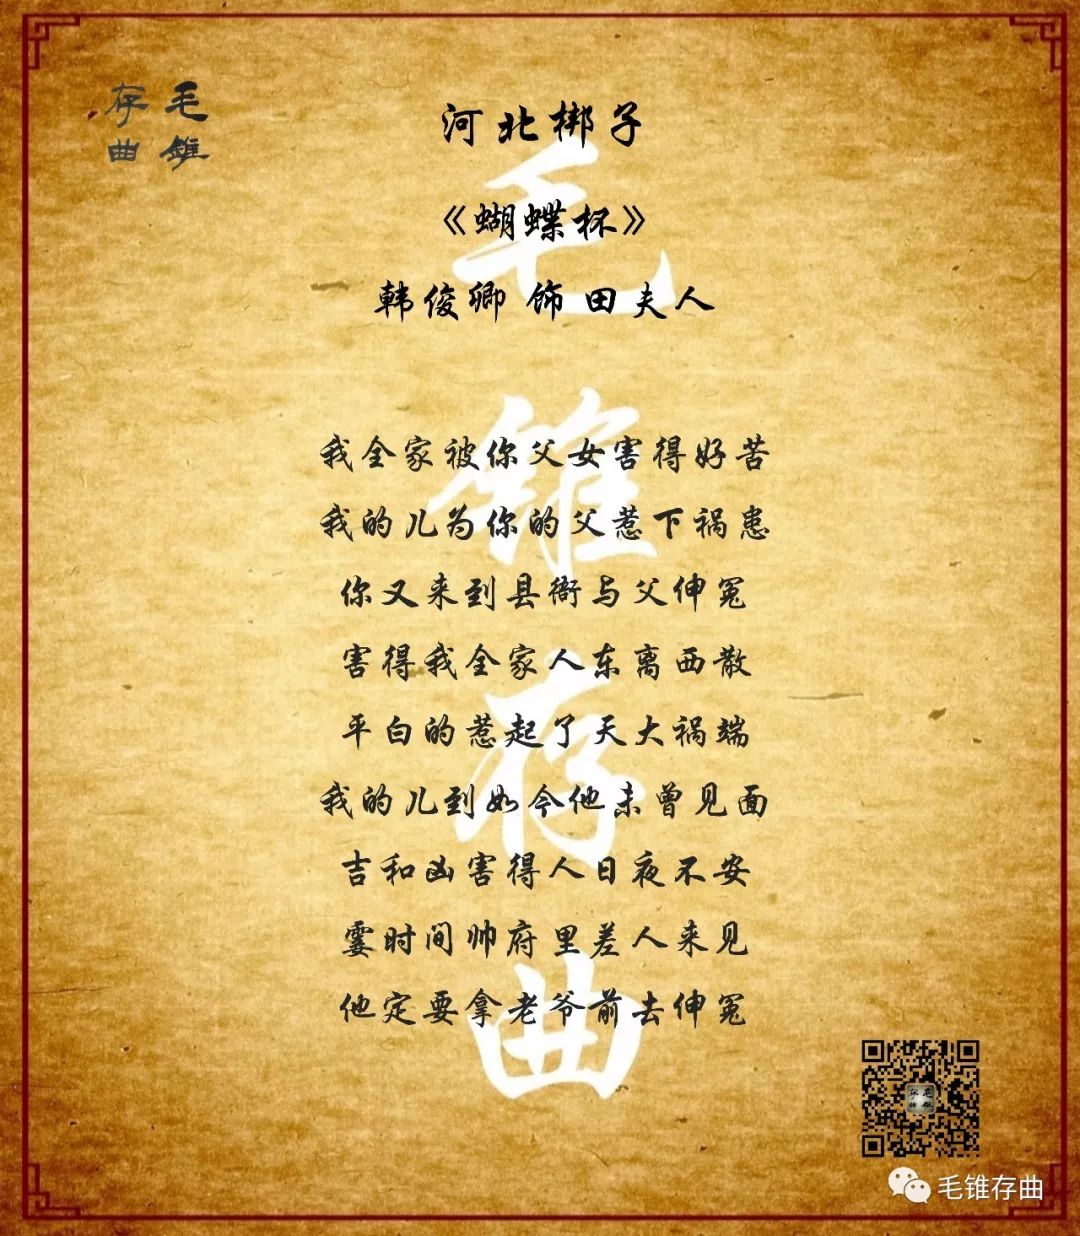 毛锥
存曲
河北梆子
《蝴蝶杯》
韩俊卿 饰 田夫人
我全家被你父女害得好苦
我的儿为你的父惹下祸患
你又来到县衙与父伸冤
害得我全家人东离西散
平白的惹起了天大祸端
我的儿到如今他未曾见面
吉和凶害得人日夜不安
霎时间帅府里差人来见
他定要拿老爷前去伸冤
毛锥存曲
毛锥存曲